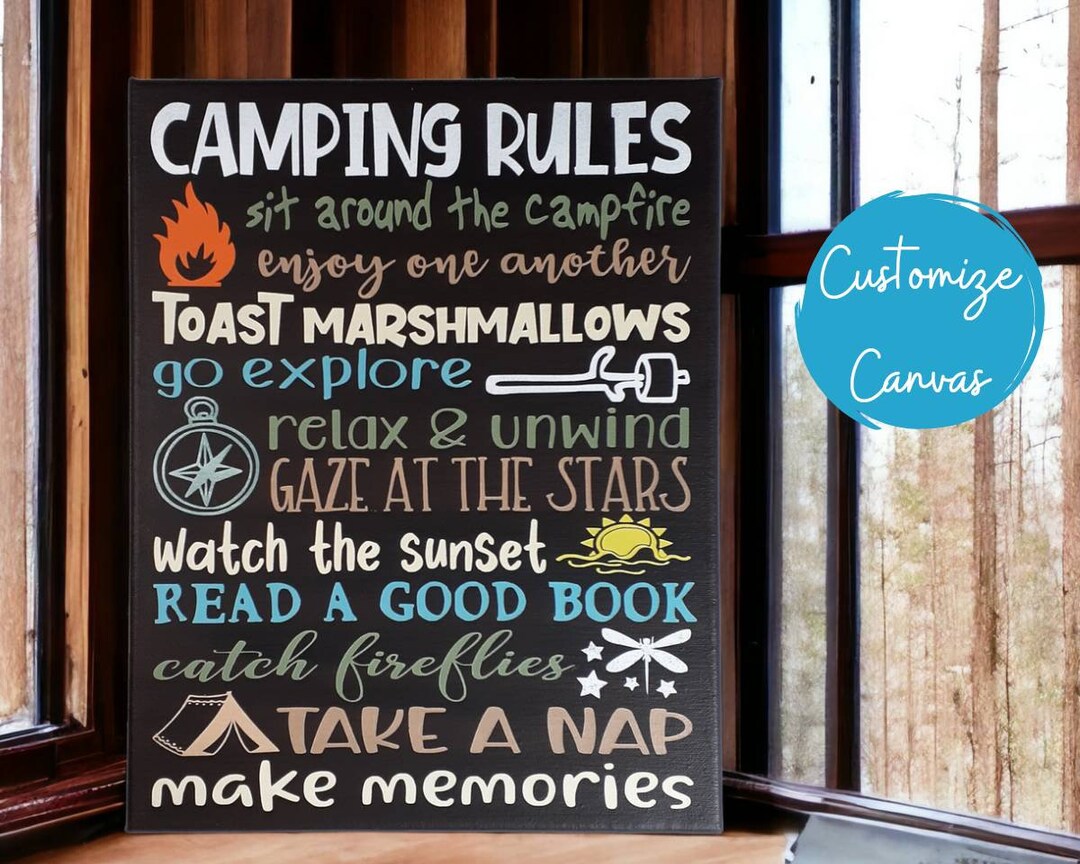 CAMPING RULES
sit around the campfire
enjoy one another
TOAST MARSHMALLOWS
go explore
relax & unwind
GAZE AT THE STARS
watch the sunset
READ A GOOD BOOK
catch fireflies
TAKE A NAP
make memories
Customize
Canvas